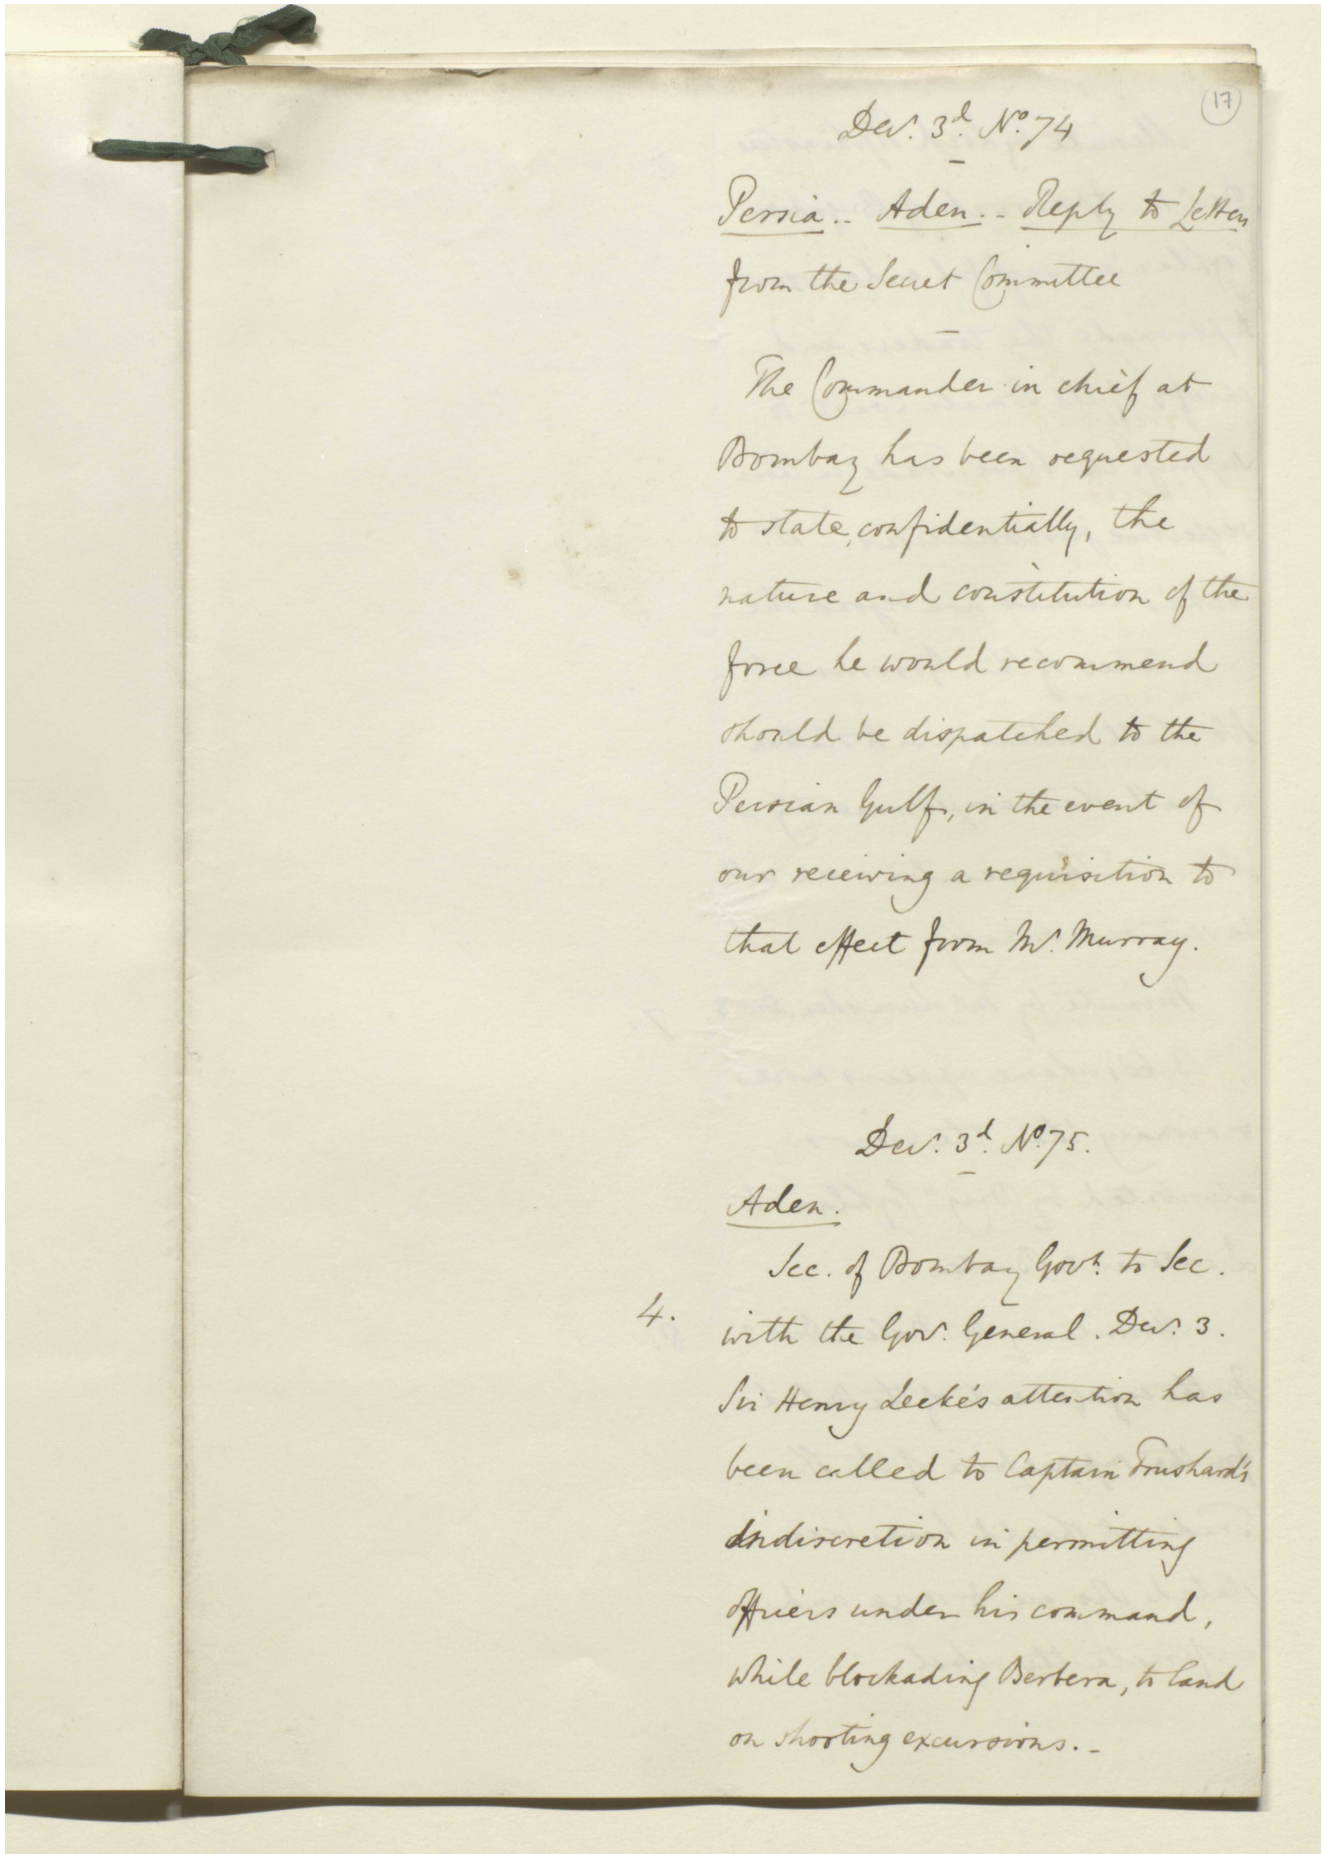 17
Decr. 3d. No. 74
Persia.. Aden.. Reply to Letters
from the Secret Committee
The Commander in chief at
Bombay has been requested
to state, confidentially, the
nature and constitution of the
force he would recommend
should be dispatched to the
Persian Gulf, in the event of
our receiving a requisition to
that effect from Mr. Murray.
Decr. 3d. No. 75.
Aden.
Sec. of Bombay Govt. to Sec.
4. with the Govr. General. Decr. 3.
Sir Henry Leeke's attention has
been called to Captain Frushard's
indiscretion in permitting
officers under his command,
while blockading Berbera, to land
on shooting excursions.-